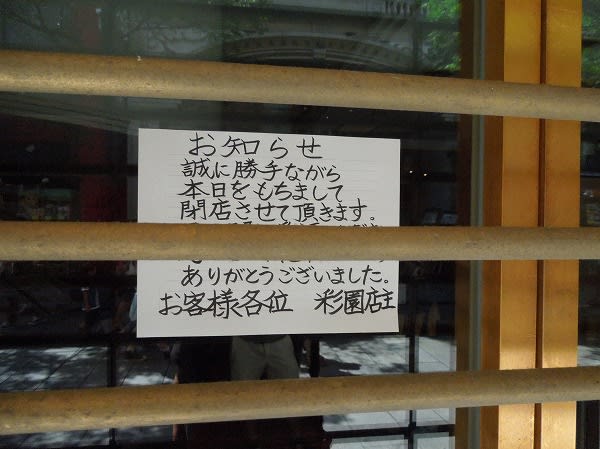 お知らせ
誠に勝手ながら
本日をもちまして
閉店させて頂きます。
ありがとうございました。
お客様各位 彩園店主